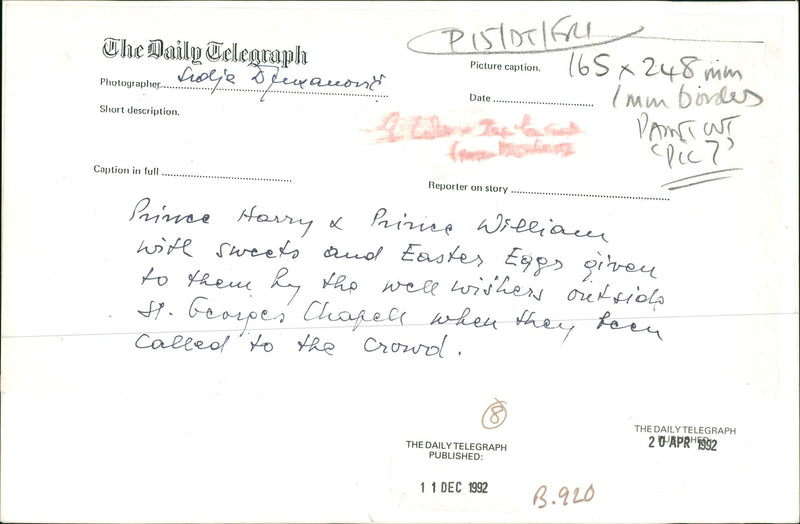 The Daily Telegraph
P15/DT/FRI
Photographer Srdja Djukanović
Picture caption.
165 x 248 mm
Date
1mm border
Short description.
PAINT OUT
(PIC 7)
Caption in full
Reporter on story
Prince Harry & Prince William
with sweets and Easter Eggs given
to them by the well wishers outside
St. Georges Chapell when they been
called to the crowd.
8
THE DAILY TELEGRAPH
PUBLISHED:
11 DEC 1992
THE DAILY TELEGRAPH
PUBLISHED:
20 APR 1992
B.920